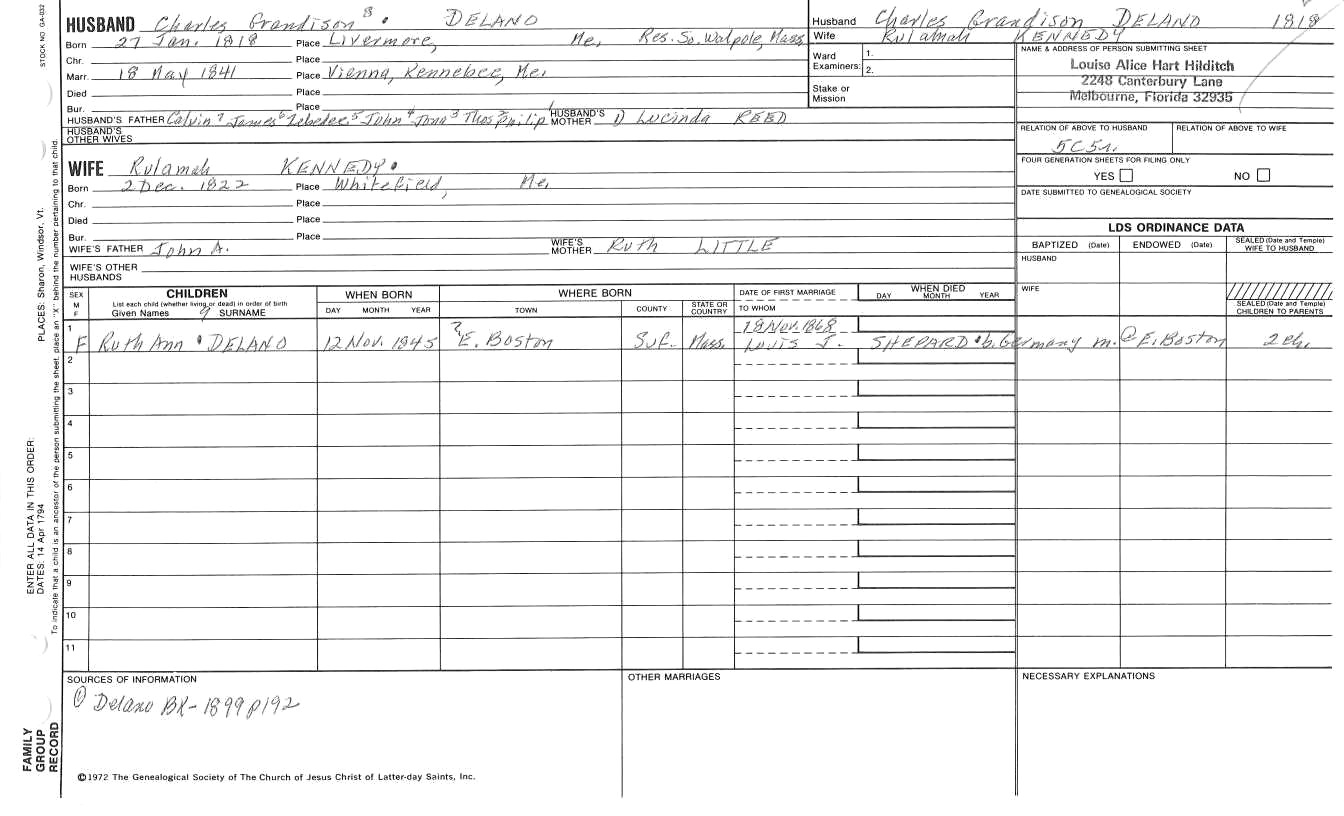 STOCK NO. GA-032
HUSBAND Charles Grandison 8 DELANO
Born 27 Jan. 1818 Place Livermore, Me, Res. So. Walpole, Mass
Chr. Place
Marr. 18 May 1841 Place Vienna, Kennebec, Me.
Died Place
Bur. Place
HUSBAND'S FATHER Calvin 7 James 6 Zebedee 5 John 4 Jona 3 Thos 2 Philip 1 HUSBAND'S MOTHER 1) Lucinda REED
HUSBAND'S OTHER WIVES
WIFE Rulamah KENNEDY
Born 2 Dec. 1822 Place Whitefield, Me,
Chr. Place
Died Place
Bur. Place
WIFE'S FATHER John A. WIFE'S MOTHER Ruth LITTLE
WIFE'S OTHER HUSBANDS
Husband Charles Grandison DELANO 1818
Wife Rulamah KENNEDY
Ward Examiners: 1.
2.
Stake or Mission
NAME & ADDRESS OF PERSON SUBMITTING SHEET
Louise Alice Hart Hilditch
2248 Canterbury Lane
Melbourne, Florida 32935
RELATION OF ABOVE TO HUSBAND RELATION OF ABOVE TO WIFE
FOUR GENERATION SHEETS FOR FILING ONLY
YES NO
DATE SUBMITTED TO GENEALOGICAL SOCIETY
LDS ORDINANCE DATA
BAPTIZED (Date) ENDOWED (Date) SEALED (Date and Temple) WIFE TO HUSBAND
HUSBAND
WIFE
SEALED (Date and Temple) CHILDREN TO PARENTS
SEX M F CHILDREN WHEN BORN WHERE BORN DATE OF FIRST MARRIAGE WHEN DIED
List each child (whether living or dead) in order of birth
Given Names 9 SURNAME DAY MONTH YEAR TOWN COUNTY STATE OR COUNTRY TO WHOM DAY MONTH YEAR
1 18 Nov. 1868
F Ruth Ann DELANO 12 Nov. 1845 ? E. Boston Suf. Mass. Louis J. SHEPARD b. Germany m. @ E. Boston 2 ch.
2
3
4
5
6
7
8
9
10
11
SOURCES OF INFORMATION OTHER MARRIAGES NECESSARY EXPLANATIONS
① Delano BK-1899 p192
©1972 The Genealogical Society of The Church of Jesus Christ of Latter-day Saints, Inc.
FAMILY GROUP RECORD
ENTER ALL DATA IN THIS ORDER:
DATES: 14 Apr 1794
PLACES: Sharon, Windsor, Vt.
To indicate that a child is an ancestor of the person submitting the sheet, place an "X" behind the number pertaining to that child.